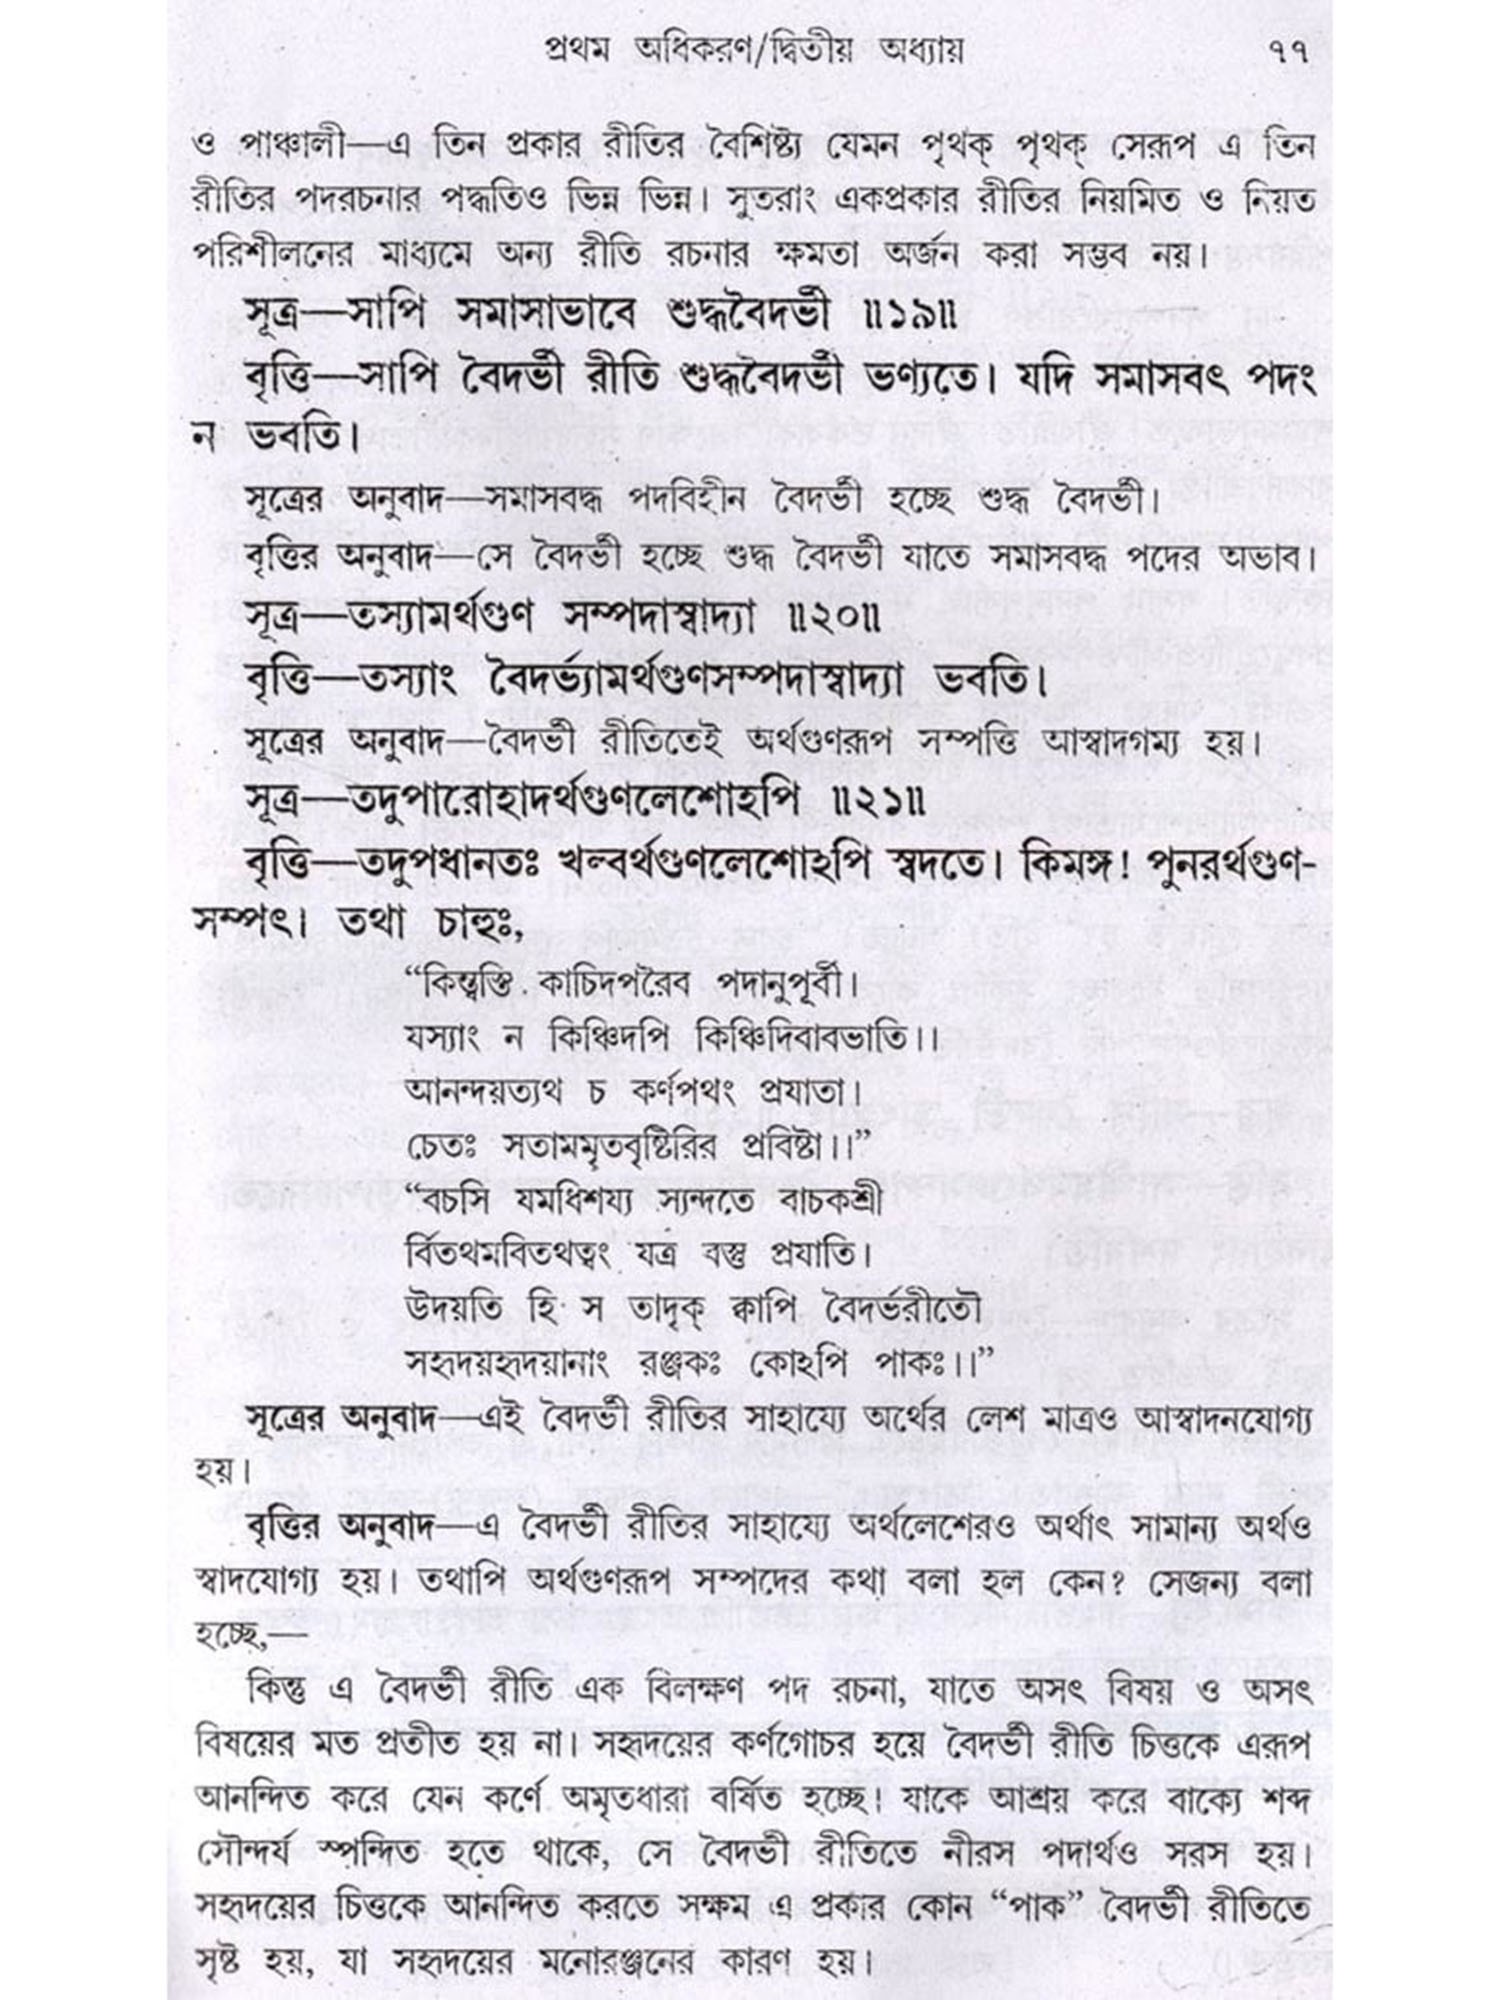 প্রথম অধিকরণ/দ্বিতীয় অধ্যায় ৭৭
ও পাঞ্চালী—এ তিন প্রকার রীতির বৈশিষ্ট্য যেমন পৃথক্ পৃথক্ সেরূপ এ তিন
রীতির পদরচনার পদ্ধতিও ভিন্ন ভিন্ন। সুতরাং একপ্রকার রীতির নিয়মিত ও নিয়ত
পরিশীলনের মাধ্যমে অন্য রীতি রচনার ক্ষমতা অর্জন করা সম্ভব নয়।
সূত্র—সাপি সমাসাভাবে শুদ্ধবৈদর্ভী ॥১৯॥
বৃত্তি—সাপি বৈদর্ভী রীতি শুদ্ধবৈদর্ভী ভণ্যতে। যদি সমাসবৎ পদং
ন ভবতি।
সূত্রের অনুবাদ—সমাসবদ্ধ পদবিহীন বৈদর্ভী হচ্ছে শুদ্ধ বৈদর্ভী।
বৃত্তির অনুবাদ—সে বৈদর্ভী হচ্ছে শুদ্ধ বৈদর্ভী যাতে সমাসবদ্ধ পদের অভাব।
সূত্র—তস্যামর্থগুণ সম্পদাস্বাদ্যা ॥২০॥
বৃত্তি—তস্যাং বৈদর্ভ্যামর্থগুণসম্পদাস্বাদ্যা ভবতি।
সূত্রের অনুবাদ—বৈদর্ভী রীতিতেই অর্থগুণরূপ সম্পত্তি আস্বাদগম্য হয়।
সূত্র—তদুপারোহাদর্থগুণলেশোঽপি ॥২১॥
বৃত্তি—তদুপধানতঃ খল্বর্থগুণলেশোঽপি স্বদতে। কিমঙ্গ! পুনরর্থগুণ-
সম্পৎ। তথা চাহুঃ,
“কিন্ত্বস্তি কাচিদপরৈব পদানুপূর্বী।
যস্যাং ন কিঞ্চিদপি কিঞ্চিদিবাবভাতি।।
আনন্দয়ত্যথ চ কর্ণপথং প্রযাতা।
চেতঃ সতামমৃতবৃষ্টিরির প্রবিষ্টা।।”
“বচসি যমধিশয্য স্যন্দতে বাচকশ্রী
র্বিতথমবিতথত্বং যত্র বস্তু প্রযাতি।
উদয়তি হি স তাদৃক্ ক্বাপি বৈদর্ভরীতৌ
সহৃদয়হৃদয়ানাং রঞ্জকঃ কোঽপি পাকঃ।।”
সূত্রের অনুবাদ—এই বৈদর্ভী রীতির সাহায্যে অর্থের লেশ মাত্রও আস্বাদনযোগ্য
হয়।
বৃত্তির অনুবাদ—এ বৈদর্ভী রীতির সাহায্যে অর্থলেশেরও অর্থাৎ সামান্য অর্থও
স্বাদযোগ্য হয়। তথাপি অর্থগুণরূপ সম্পদের কথা বলা হল কেন? সেজন্য বলা
হচ্ছে,—
কিন্তু এ বৈদর্ভী রীতি এক বিলক্ষণ পদ রচনা, যাতে অসৎ বিষয় ও অসৎ
বিষয়ের মত প্রতীত হয় না। সহৃদয়ের কর্ণগোচর হয়ে বৈদর্ভী রীতি চিত্তকে এরূপ
আনন্দিত করে যেন কর্ণে অমৃতধারা বর্ষিত হচ্ছে! যাকে আশ্রয় করে বাক্যে শব্দ
সৌন্দর্য স্পন্দিত হতে থাকে, সে বৈদর্ভী রীতিতে নীরস পদার্থও সরস হয়।
সহৃদয়ের চিত্তকে আনন্দিত করতে সক্ষম এ প্রকার কোন “পাক” বৈদর্ভী রীতিতে
সৃষ্ট হয়, যা সহৃদয়ের মনোরঞ্জনের কারণ হয়।